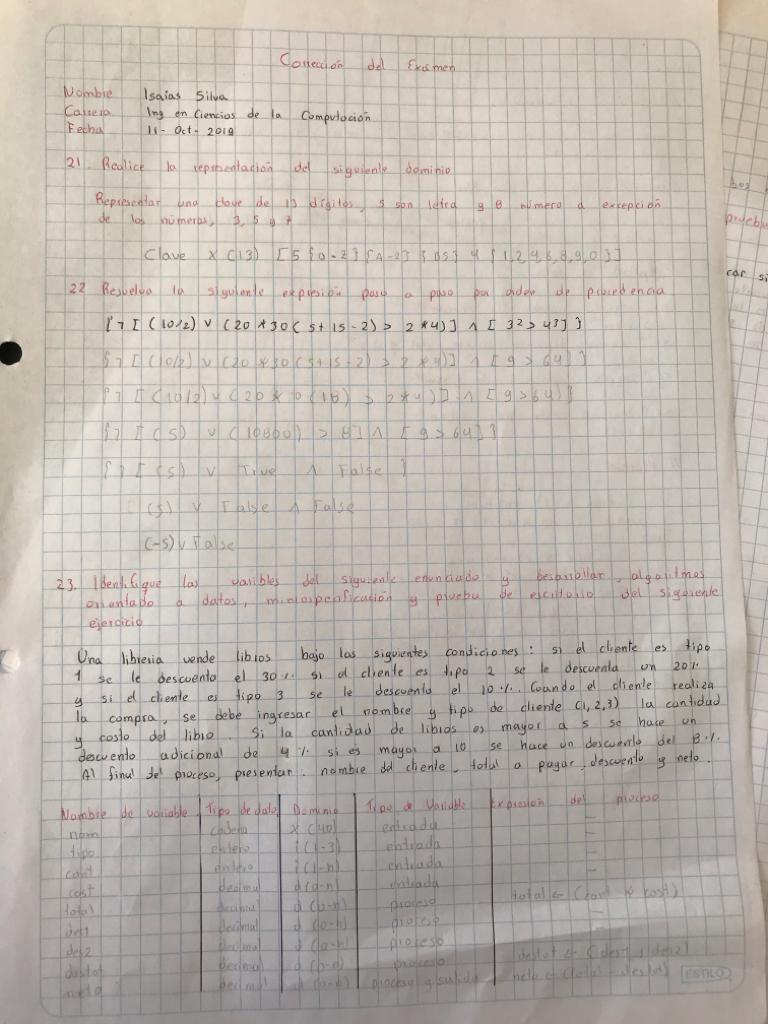 Corrección del Exámen
Nombre Isaías Silva
Carrera Ing en Ciencias de la Computación
Fecha 11-Oct-2018
21 Realice la representación del siguiente dominio
Representar una clave de 13 dígitos, 5 son letra y 8 número a excepción
de los números, 3, 5 y 7
Clave X (13) [5 {a-z} {A-Z} 8 {1,2,4,6,8,9,0}]
22 Resuelva la siguiente expresión paso a paso por orden de procedencia
{¬[(10/2) ∨ (20*30(5+15-2) > 2*4)] ∧ [3² > 4³]}
{¬[(10/2) ∨ (20*30(5+15-2) > 2*4)] ∧ [9 > 64]}
{¬[(10/2) ∨ (20* 0(18) > 2*4)] ∧ [9 > 64]}
{¬[(5) ∨ (10800) > 8] ∧ [9 > 64]}
{¬[(5) ∨ True ∧ False]
(5) ∨ False ∧ False
(-5) ∨ False
23. Identifique las variables del siguiente enunciado y desarrollar, algoritmos
orientado a datos, miniespecificación y prueba de escritorio del siguiente
ejercicio
Una librería vende libros bajo las siguientes condiciones: si el cliente es tipo
1 se le descuento el 30% si el cliente es tipo 2 se le descuenta un 20%
y si el cliente es tipo 3 se le descuento el 10%. Cuando el cliente realiza
la compra, se debe ingresar el nombre y tipo de cliente (1,2,3) la cantidad
y costo del libro. Si la cantidad de libros es mayor a 5 se hace un
descuento adicional de 4% si es mayor a 10 se hace un descuento del 8%.
Al final del proceso, presentar. nombre del cliente, total a pagar, descuento y neto.
Nombre de variable Tipo de dato Dominio Tipo de Variable Expresión del proceso
nom cadena X (40) entrada -
tipo entero i (1-3) entrada -
cant entero i (1-n) entrada -
cost decimal d (0-n) entrada -
total decimal d (0-n) proceso total ← (cant * cost)
des1 decimal d (0-n) proceso -
des2 decimal d (0-n) proceso -
destot decimal d (0-n) proceso destot ← (des1 + des2)
neto decimal d (0-n) proceso y salida neto ← (total - destot)
ESTILO